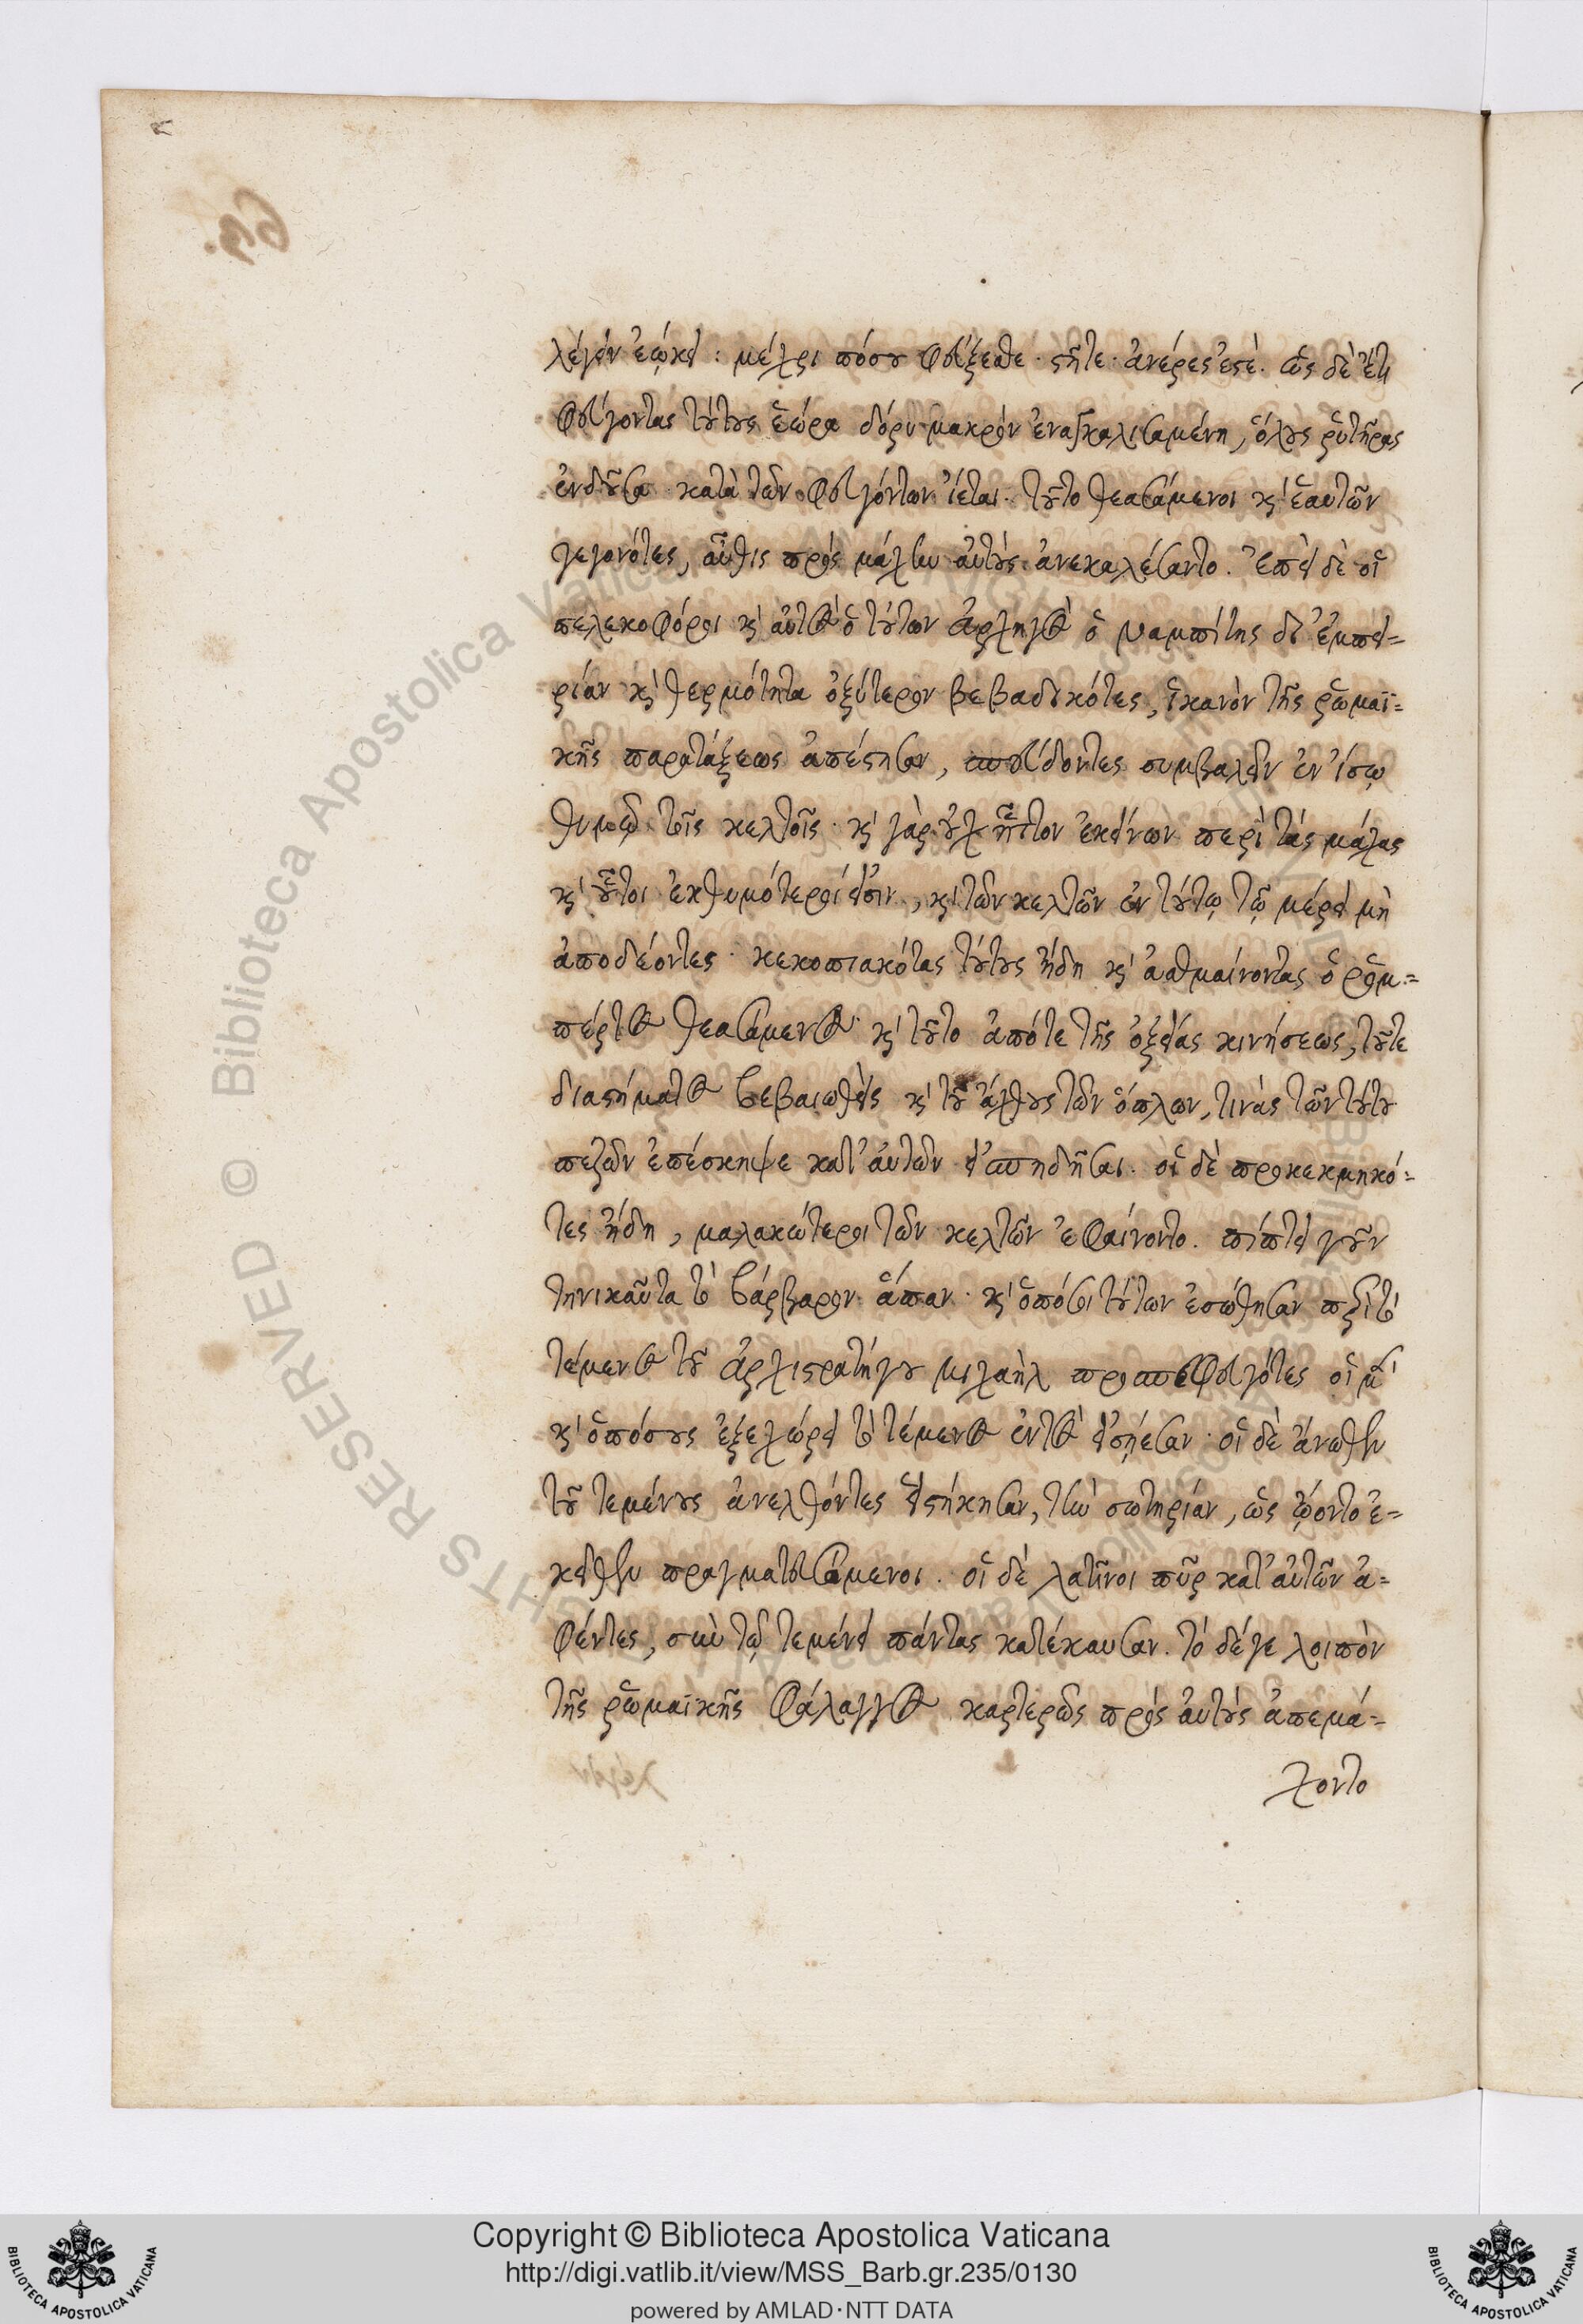 λέγειν ἐῴκει : μέχρι πόσου φεύξεσθε · στῆτε · ἀνέρες ἐστέ. ὡς δὲ ἔτι
φεύγοντας τούτους ἑώρα δόρυ μακρὸν ἐναγκαλισαμένη, ὅλους ῥυτῆρας
ἐνδοῦσα κατὰ τῶν φευγόντων ἵεται. τοῦτο θεασάμενοι καὶ ἑαυτῶν
γεγονότες, αὖθις πρὸς μάχην αὐτοὺς ἀνεκαλέσαντο. Ἐπεὶ δὲ οἱ
πελεκοφόροι καὶ αὐτὸς ὁ τούτων ἀρχηγὸς ὁ Ναμπίτης δι' ἐμπει=
ρίαν καὶ θερμότητα ὀξύτερον βεβαδικότες, ἱκανὸν τῆς ῥωμαϊ=
κῆς παρατάξεως ἀπέστησαν, σπεύδοντες συμβαλεῖν ἐν ἴσῳ
θυμῷ τοῖς κελτοῖς · καὶ γὰρ οὐχ ἧττον ἐκείνων περὶ τὰς μάχας
καὶ οὗτοι ἐκθυμότεροί εἰσιν, καὶ τῶν κελτῶν ἐν τούτῳ τῷ μέρει μὴ
ἀποδέοντες · κεκοπιακότας τούτους ἤδη καὶ ἀσθμαίνοντας ὁ ῥομ=
πέρτος θεασάμενος καὶ τοῦτο ἀπό τε τῆς ὀξείας κινήσεως, τοῦ τε
διαστήματος βεβαιωθεὶς καὶ τοῦ ἄχθους τῶν ὅπλων, τινὰς τῶν τούτου
πεζῶν ἐπέσκηψε κατ' αὐτῶν εἰσπηδῆσαι. οἱ δὲ προκεκμηκό=
τες ἤδη, μαλακώτεροι τῶν κελτῶν ἐφαίνοντο. πίπτει γοῦν
τηνικαῦτα τὸ βάρβαρον ἅπαν · καὶ ὁπόσοι τούτων ἐσώθησαν περὶ τὸ
τέμενος τοῦ ἀρχιστρατήγου μιχαὴλ προσπεφευγότες οἱ μὲν
καὶ ὁπόσους ἐξεχώρει τὸ τέμενος ἐντὸς εἰσῄεσαν · οἱ δὲ ἄνωθεν
τοῦ τεμένους ἀνελθόντες εἱστήκησαν, τὴν σωτηρίαν, ὡς ᾤοντο ἐ=
κεῖθεν πραγματευσάμενοι. οἱ δὲ λατῖνοι πῦρ κατ' αὐτῶν ἀ=
φέντες, σὺν τῷ τεμένει πάντας κατέκαυσαν. τὸ δέ γε λοιπὸν
τῆς ῥωμαϊκῆς φάλαγγος καρτερῶς πρὸς αὐτοὺς ἀπεμά=
χοντο
Copyright © Biblioteca Apostolica Vaticana
http://digi.vatlib.it/view/MSS_Barb.gr.235/0130
powered by AMLAD·NTT DATA